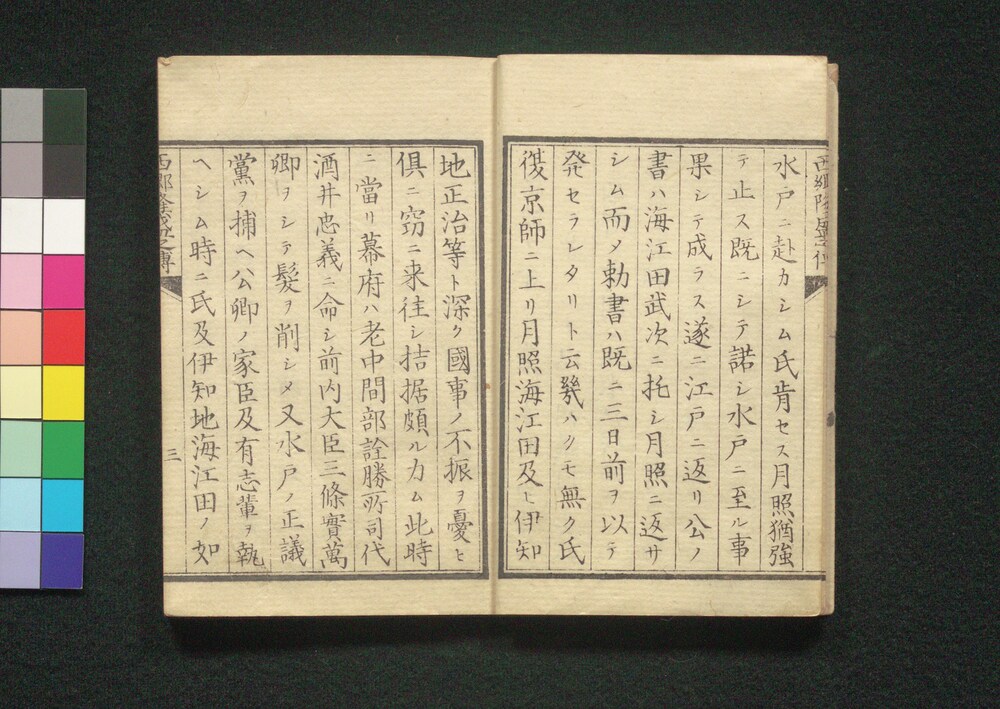 水戸ニ赴カシム氏肯セス月照猶強
テ止ス既ニシテ諾シ水戸ニ至ル事
果シテ成ラス遂ニ江戸ニ返リ公ノ
書ハ海江田武次ニ托シ月照ニ返サ
シム而メ勅書ハ既ニ二三日前ヲ以テ
発セラレタリト云幾ハクモ無ク氏
復京師ニ上リ月照海江田及ヒ伊知
地正治等ト深ク國事ノ不振ヲ憂ヒ
俱ニ窃ニ来往シ拮据頗ル力ム此時
ニ當リ幕府ハ老中間部詮勝所司代
酒井忠義ニ命シ前内大臣三條實萬
卿ヲシテ髮ヲ削シメ又水戸ノ正議
黨ヲ捕ヘ公卿ノ家臣及有志輩ヲ執
ヘシム時ニ氏及伊知地海江田ノ如
西郷隆盛之傳
三